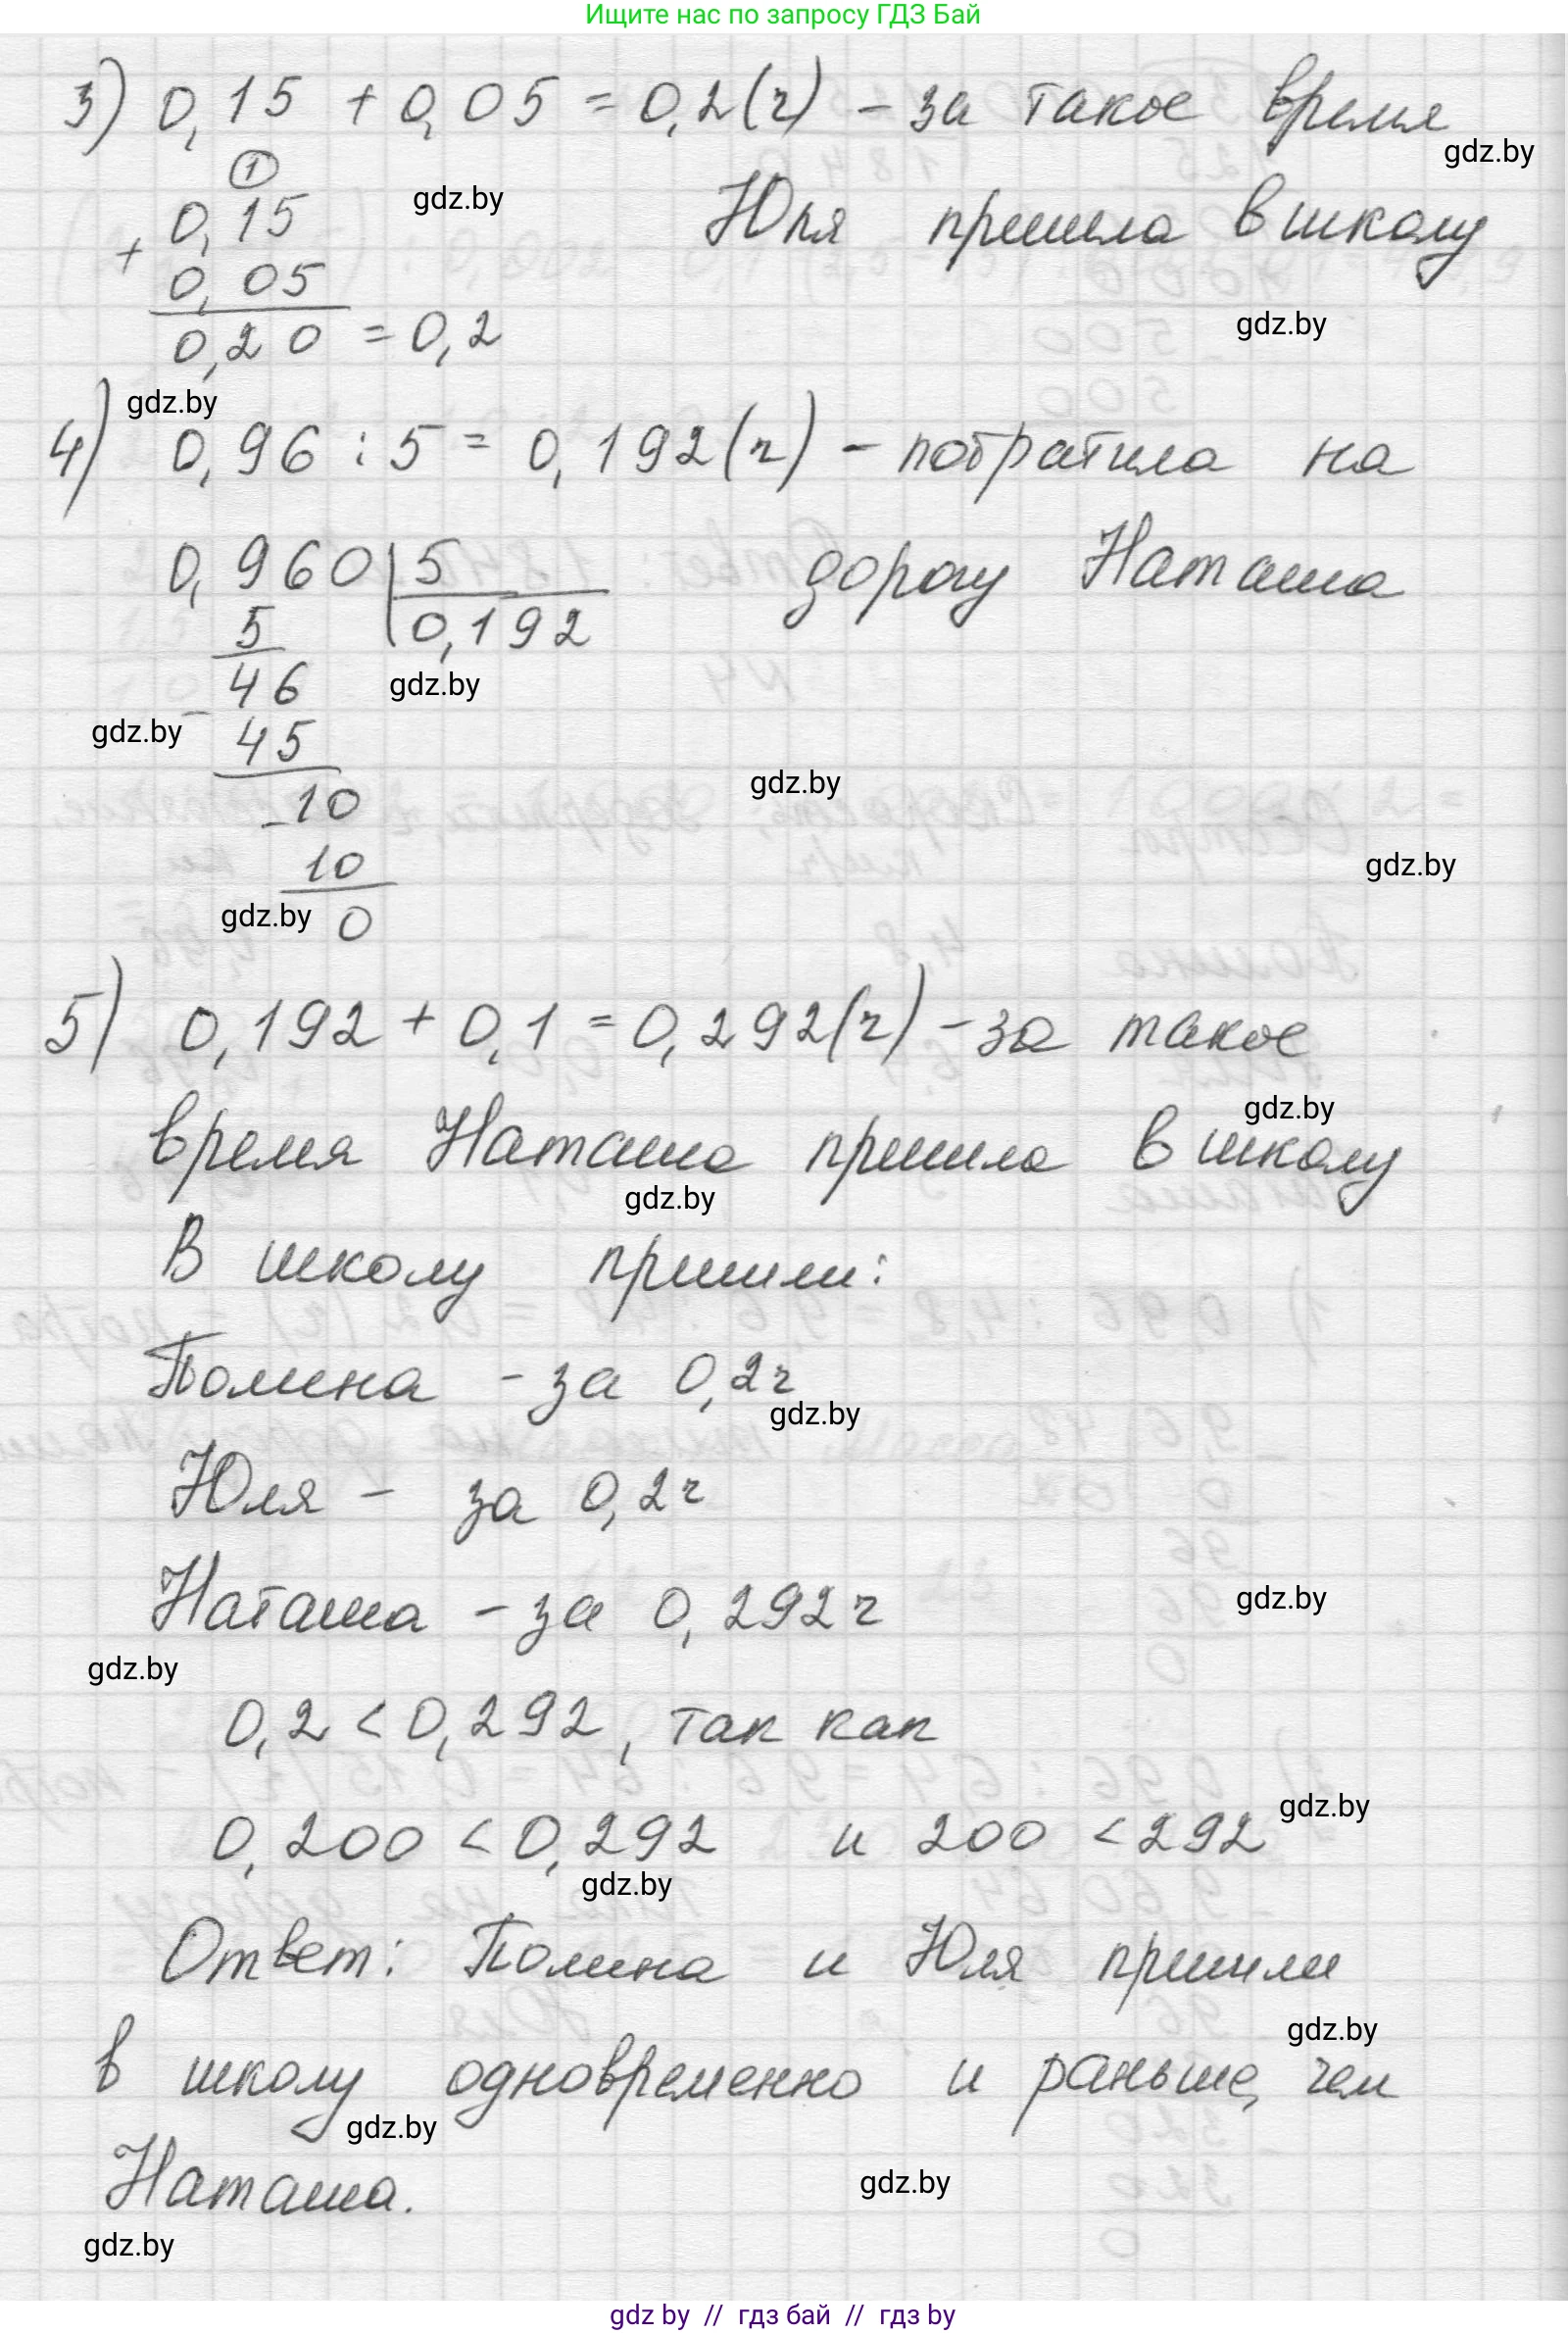 Ищите нас по запросу ГДЗ Бай
3) 0,15 + 0,05 = 0,2(ч) – за такое время
gdz.by
1
gdz.by
0,15
Юля пришла в школу
+
0,05
0,20 = 0,2
gdz.by
gdz.by
4) 0,96 : 5 = 0,192(ч) – потратила на
0,960 5
дорогу Наташа
5 0,192
46
gdz.by
gdz.by
– 45
gdz.by
– 10
gdz.by
10
gdz.by
0
5) 0,192 + 0,1 = 0,292(ч) – за такое
gdz.by
время Наташа пришла в школу
gdz.by
В школу пришли:
Полина – за 0,2ч
gdz.by
Юля – за 0,2ч
gdz.by
Наташа – за 0,292ч
gdz.by
0,2 < 0,292, так как
gdz.by
0,200 < 0,292 и 200 < 292
gdz.by
Ответ: Полина и Юля пришли
gdz.by
в школу одновременно и раньше, чем
gdz.by
Наташа.
gdz.by
gdz.by
gdz by // гдз бай // гдз by